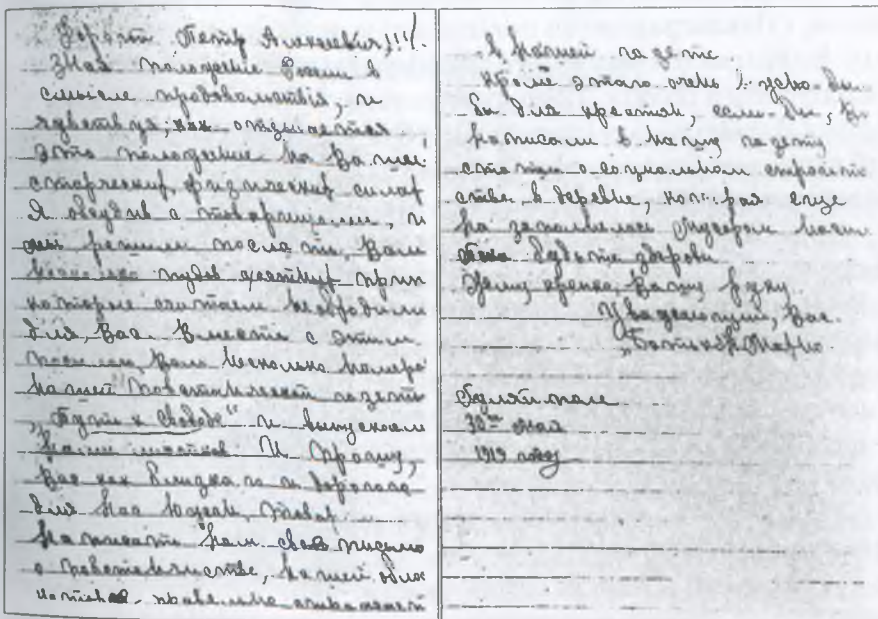 Дорогой Петр Алексеевич!!!
Зная положение России в
смысле продовольствия, и
чувствуя; как отзывается
это положение на Ваших
старческих, физических силах
Я обсудив с товарищами, и
мы решили послать, Вам
несколько пудов
которые считаем необходимым
для, Вас. Вместе с этим
посылаю, Вам несколько номеро
нашей повстанческой газеты
„Путь к Свободе“ и выпускаем
нами листков И прошу,
Вас как близкаго и дорогого
для нас товар
написать нам свое письмо
о повстанчестве, нашей облас
правильно отражается
в нашей газете
кроме этого очень
бы для крестьян, если-бы, Вы
написали в нашу газету
статьи о социальном строитель
стве в деревне, которая еще
не заполнилась мусором
Будьте здоровы
Жму крепко Вашу руку.
Уважающий, Вас.
„Батько“ Махно.
Гуляй поле
30го Мая
1919 году